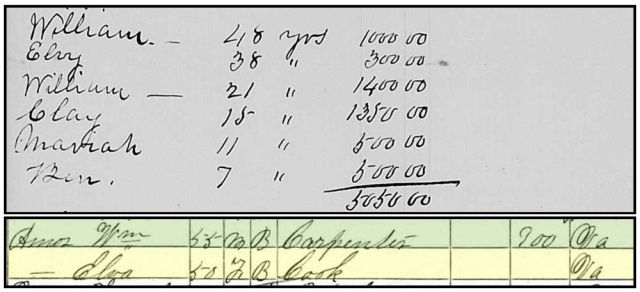 William. — 48 yrs 1000 00
Elvy 38 " 300 00
William — 21 " 1400 00
Clay 15 " 1350 00
Mariah 11 " 500 00
Ben. 7 " 500 00
5050 00
Amos Wm 55 M B Carpenter 700 Va
— Elva 50 F B Cook Va